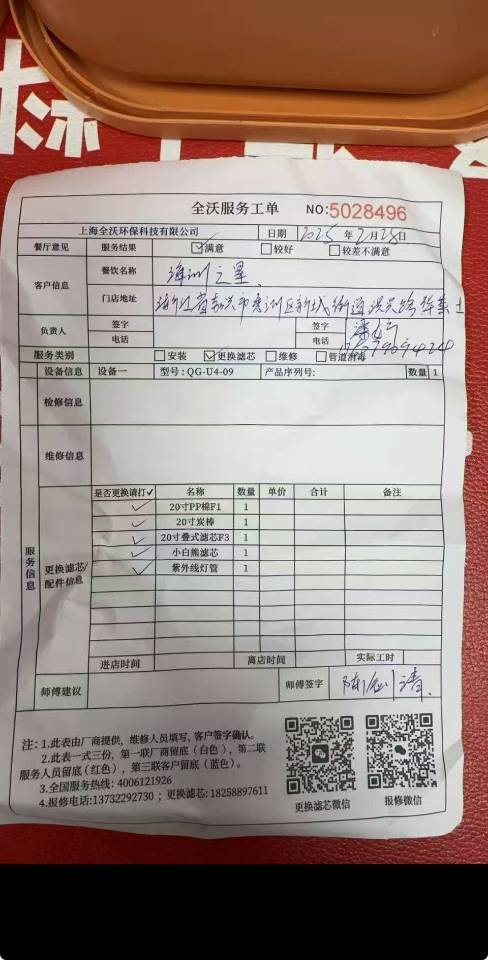 全沃服务工单 NO:5028496
上海全沃环保科技有限公司 日期 2025 年 2 月 28 日
餐厅意见 服务结果 ☑满意 □较好 □较差不满意
客户信息 餐饮名称 之星
门店地址 浙江省嘉兴市秀洲区新城街道洪兴路华
负责人 签字 签字
电话 电话
服务类别 □安装 ☑更换滤芯 □维修 □管道消毒
服务信息
设备信息 设备一 型号:QG-U4-09 产品序列号: 数量 1
检修信息
维修信息
更换滤芯/配件信息
是否更换请打✓ 名称 数量 单价 合计 备注
✓ 20寸PP棉F1 1
✓ 20寸炭棒 1
✓ 20寸叠式滤芯F3 1
✓ 小白熊滤芯 1
✓ 紫外线灯管 1
进店时间 离店时间 实际工时
师傅建议 师傅签字
注:1.此表由厂商提供, 维修人员填写, 客户签字确认。
2.此表一式三份, 第一联厂商留底(白色), 第二联
服务人员留底(红色), 第三联客户留底(蓝色)。
3.全国服务热线: 4006121926
4.报修电话:13732292730 ; 更换滤芯: 18258897611
更换滤芯微信 报修微信